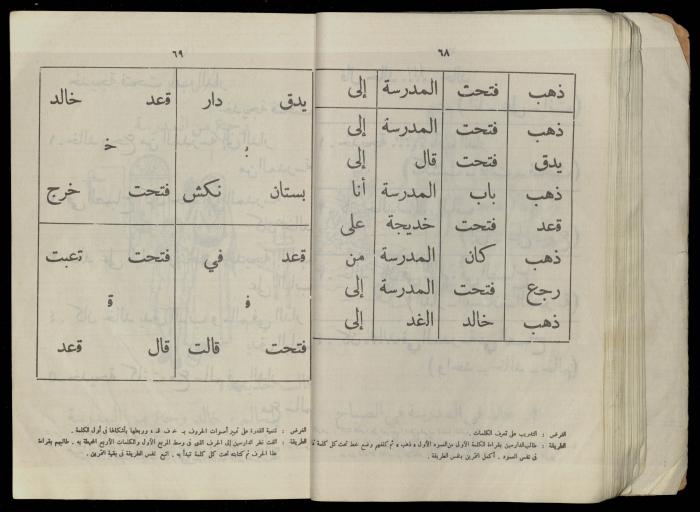 ٦٨
ذهب فتحت المدرسة إلى
ذهب فتحت المدرسة إلى
يدق فتحت قال إلى
ذهب باب المدرسة أنا
قعد فتحت خديجة على
ذهب كان المدرسة من
رجع فتحت المدرسة إلى
ذهب خالد الغد إلى
الغرض : التدريب على تعرف الكلمات .
الطريقة : طالب الدارسين بقراءة الكلمة الأولى من العمود الأول « ذهب » ثم كلفهم وضع خط تحت كل كلمة
فى نفس العمود . أكمل التمرين بنفس الطريقة .
٦٩
يدق دار قعد خالد
ب خ
بستان نكش فتحت خرج
قعد في فتحت تعبت
ف ق
فتحت قالت قال قعد
الغرض : تنمية القدرة على تمييز أصوات الحروف ب خ ف ق ، وربطها بأشكالها فى أول الكلمة .
الطريقة : الفت نظر الدارسين إلى الحرف الذى فى وسط المربع الأول والكلمات الأربع المحيطة به . طالبهم بقراءة
هذا الحرف ثم كتابته تحت كل كلمة تبدأ به . اتبع نفس الطريقة فى بقية التمرين .